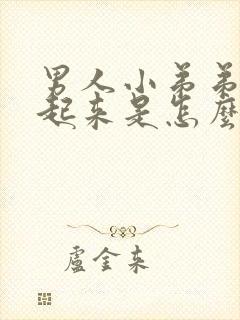 男人小弟弟
起来是怎麼
盧金来